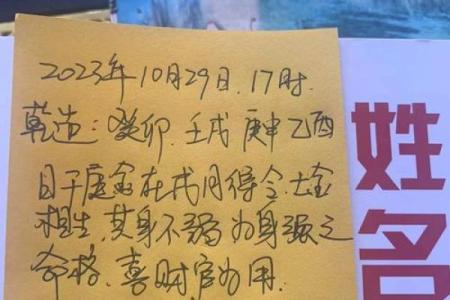 2023年10月29日.17时.
乾造:癸卯.壬戌 庚申 乙酉
日干庚金在戌月得令.土金
相生,其身不弱为身强之
命格,喜财官为用.
姓
名